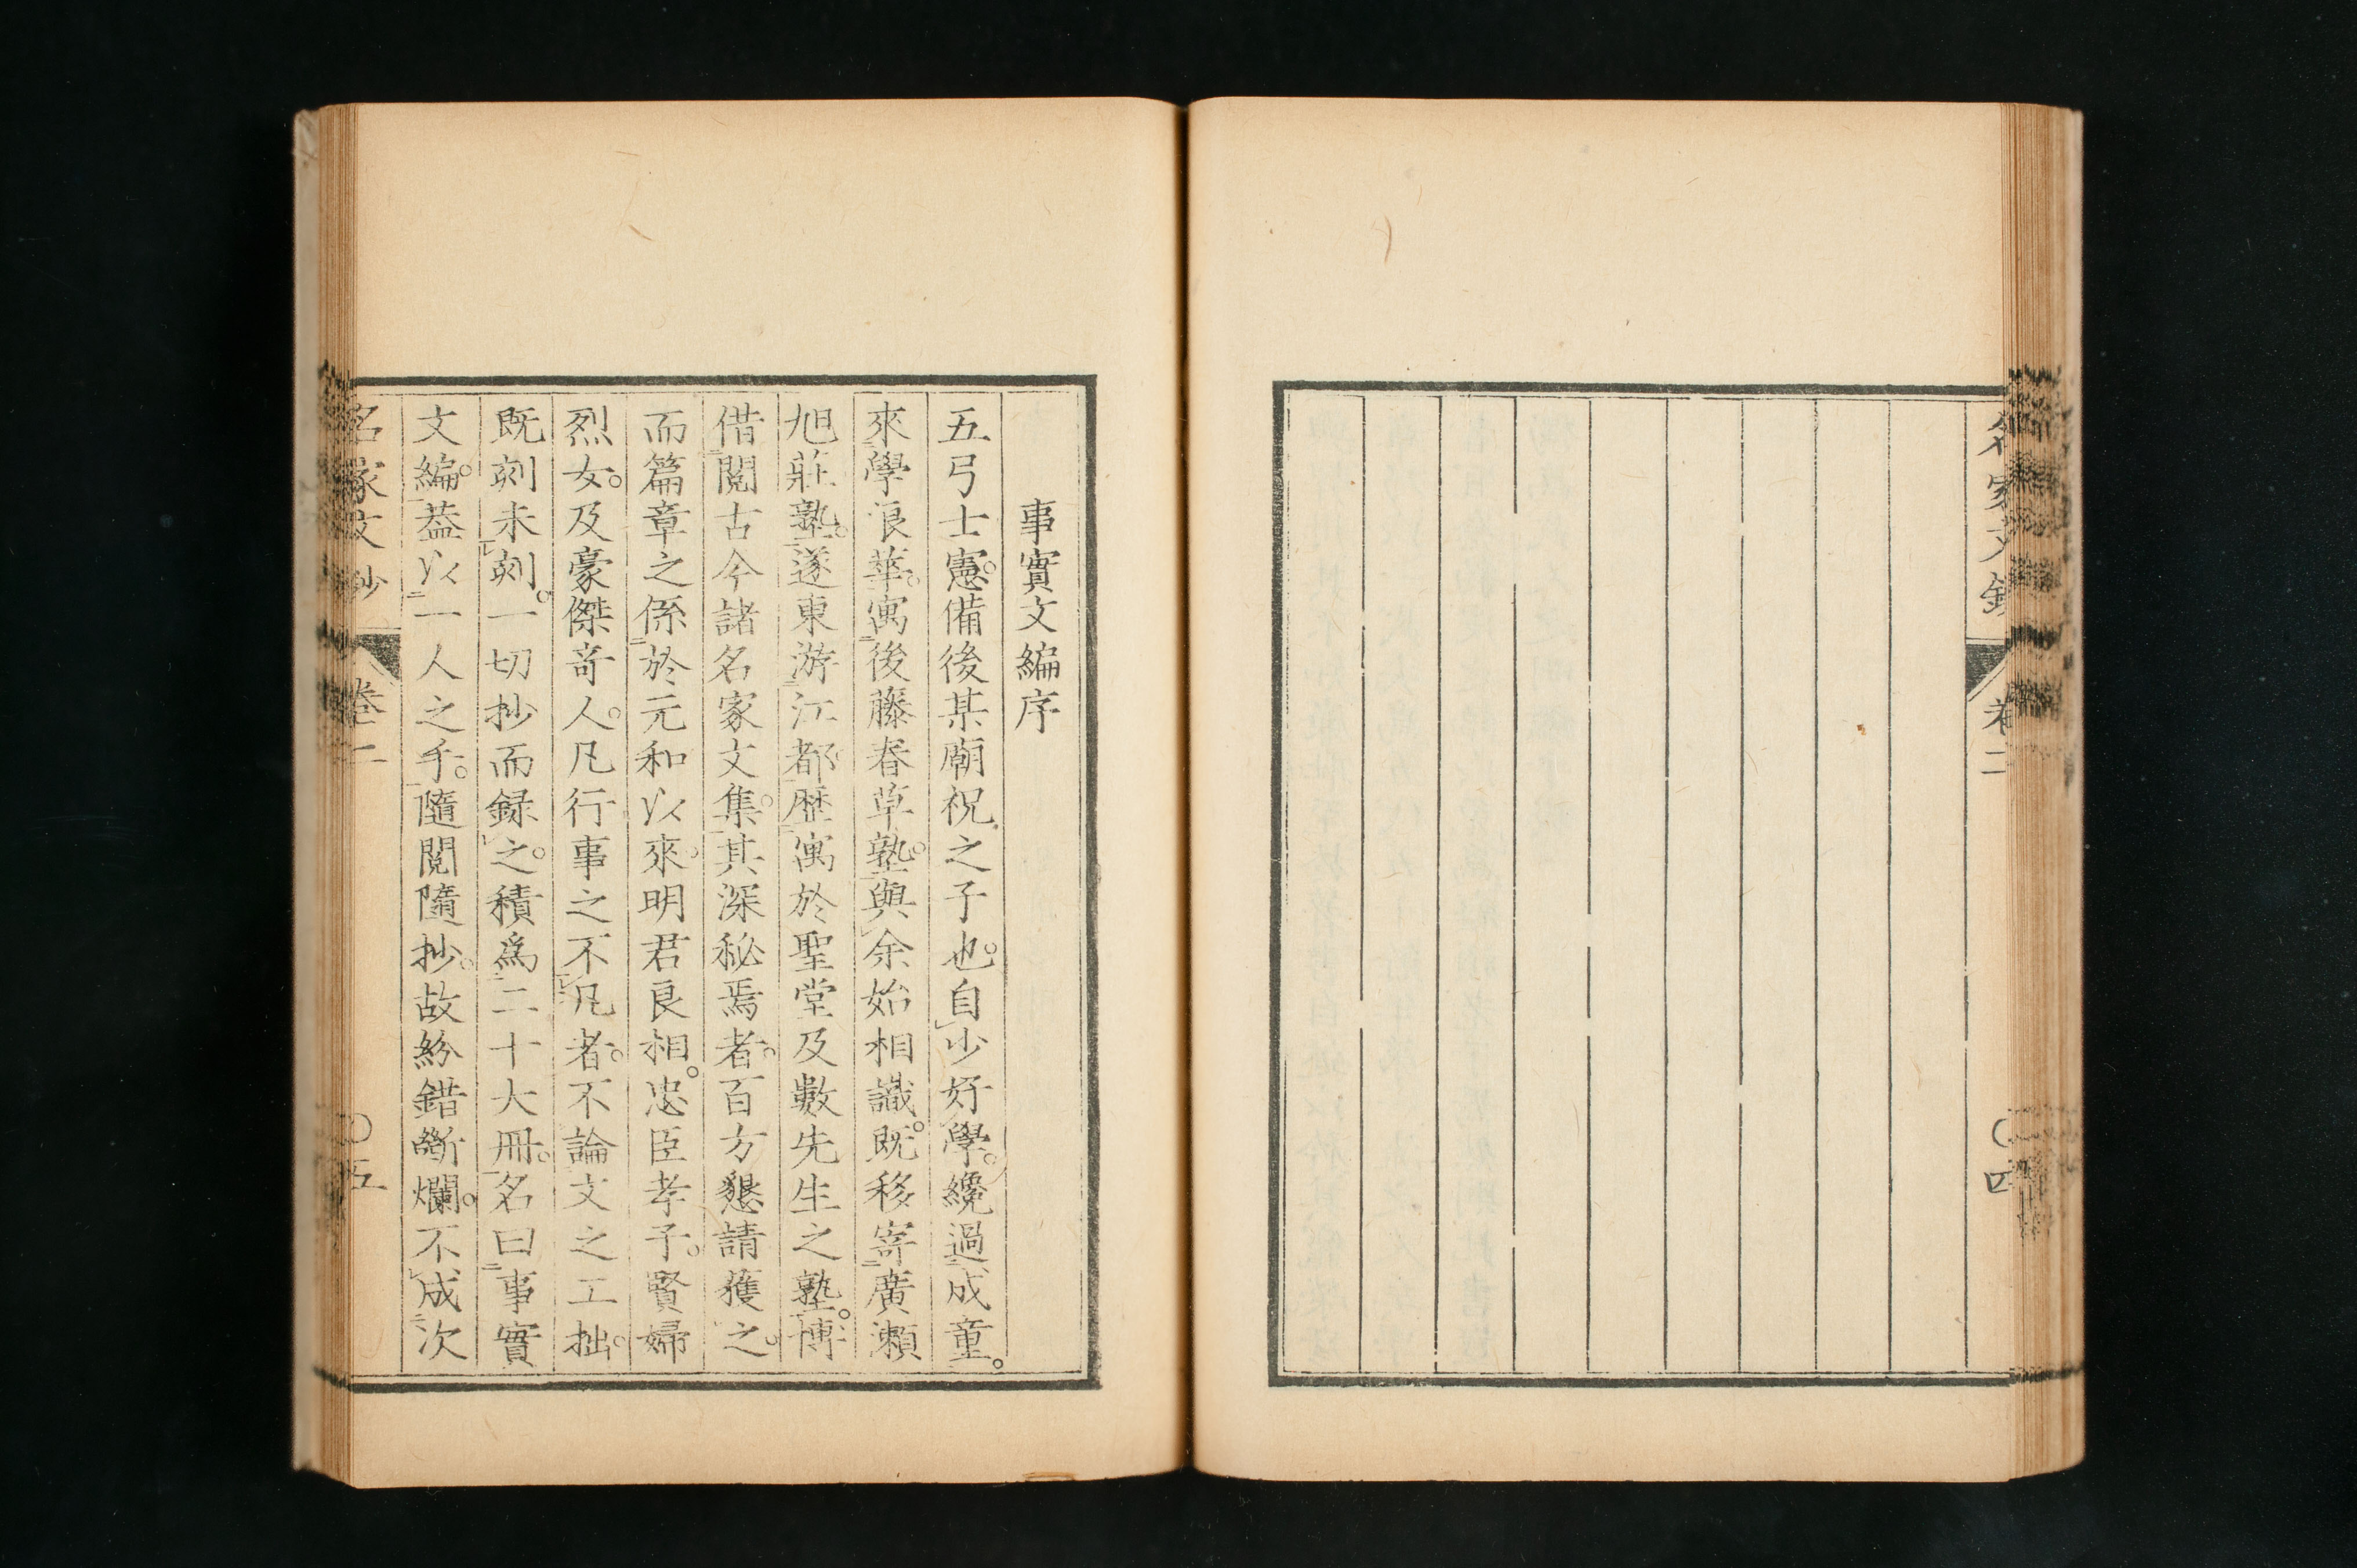 名家文鈔
卷二
〇四
事實文編序
五弓士憲。備後某廟祝之子也。自少好學。纔過成童。
來學浪華。寓後藤春草塾。與余始相識。既移寄廣瀬
旭莊塾。遂東游江都。歴寓於聖堂及數先生之塾。博
借閲古今諸名家文集。其深秘焉者。百方懇請獲之。
而篇章之係於元和以來。明君良相。忠臣孝子。賢婦
烈女。及豪傑奇人。凡行事之不凡者。不論文之工拙。
既刻未刻。一切抄而録之。積爲二十大冊。名曰事實
文編。葢以一人之手。隨閲隨抄。故紛錯斷爛。不成次
名家文鈔
卷二
〇五